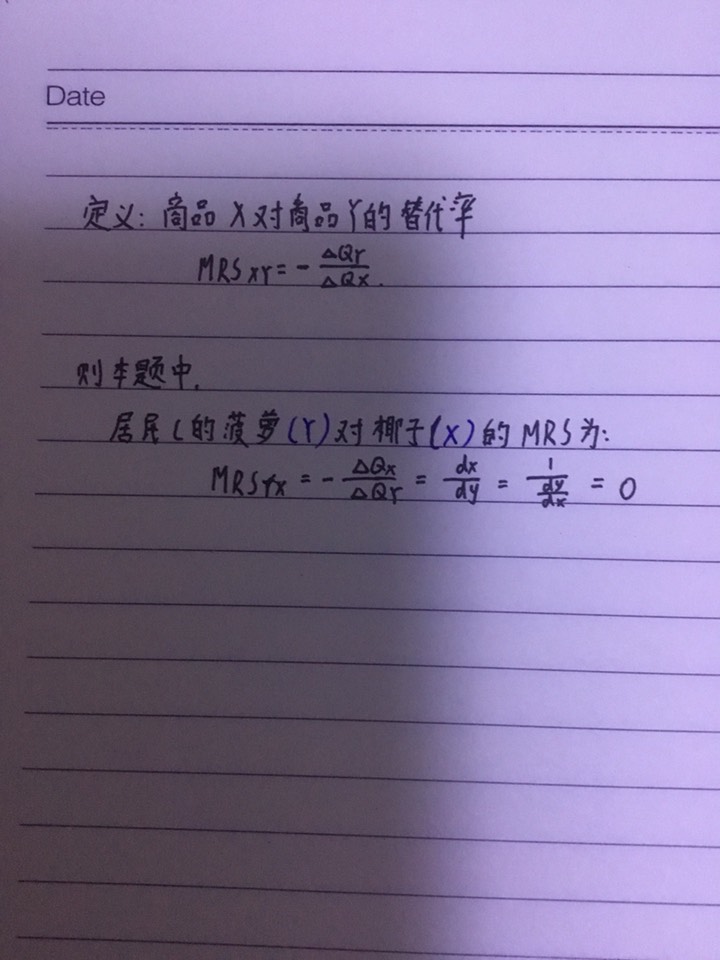 Date
定义: 商品 X 对商品 Y 的 替代率
MRS XY = - ΔQY / ΔQX.
则本题中,
居民 C 的 菠萝 (Y) 对 椰子 (X) 的 MRS 为:
MRS YX = - ΔQX / ΔQY = dx / dy = 1 / (dy / dx) = 0